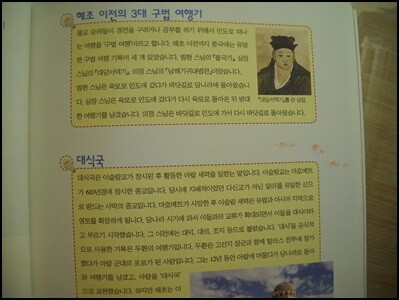 혜초 이전의 3대 구법 여행기
불교 승려들이 경전을 구하거나 공부를 하기 위해서 인도로 떠나
는 여행을 '구법 여행'이라고 합니다. 혜초 이전까지 중국에는 유명
한 구법 여행 기록이 세 개 있었습니다. 법현 스님의 『불국기』, 삼장
스님의 『대당서역기』, 의정 스님의 『남해기귀내법전』이었습니다.
법현 스님은 육로로 인도에 갔다가 바닷길로 당나라에 돌아왔습니
다. 삼장 스님은 육로로 인도에 갔다가 다시 육로로 돌아온 뒤 방대
한 여행기를 남겼습니다. 의정 스님은 바닷길로 인도에 가서 다시 바닷길로 돌아왔습니다.
『대당서역기』를 쓴 삼장
대식국
대식국은 이슬람교가 창시된 후 활동한 아랍 세력을 일컫는 말입니다. 이슬람교는 마호메트
가 창시한 종교입니다. 당시에 지배적이었던 다신교가 아닌 알라를 유일한 신으
로 받드는 사막의 종교입니다. 마호메트가 사망한 후 이슬람 세력은 유럽과 아시아 지역으로
영토를 확장하게 됩니다. 당나라 시기에 와서 이들과의 교류가 확대되면서 이들을 대식이라
고 부르기 시작했습니다. 그 이전에는 대익, 대의, 조지 등으로 불렀습니다. '대식'을 공식적
으로 사용한 기록은 두환의 여행기입니다. 두환은 고선지 장군과 함께 탈라스 전투에 참가
했다가 아랍 군대의 포로가 된 사람입니다. 그는 12년 동안 아랍에 머물다가 당나라로 돌아
와 여행기를 남겼고, 아랍을 '대식국'
으로 표현했습니다. 하지만 혜초는 이